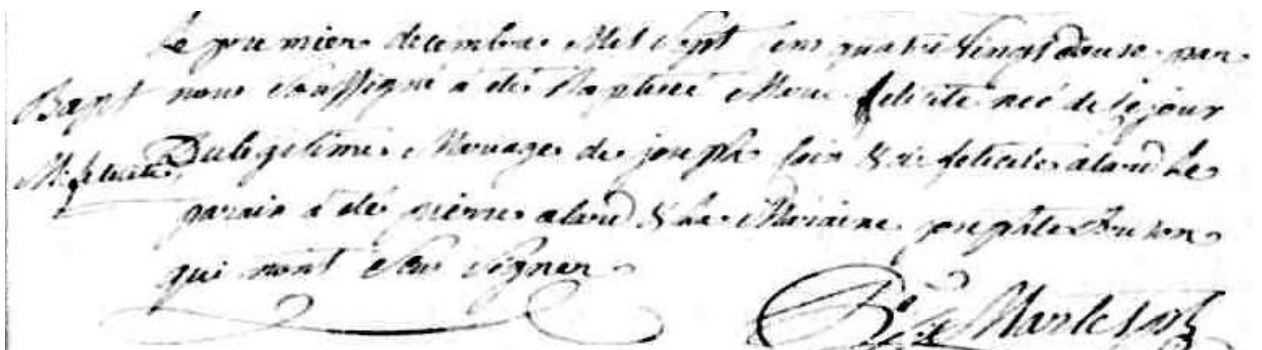 Le premier decembre Mil Sept Cens quatre Vingt douse par
Bapt nous Soussigné a été Baptisée Marie felicite neé de ce jour
M. felicite Du legitime Mariage de joseph & de felicite alard Le
parain a été pierre alard & La Maraine josephte
qui nont Sçu Signer